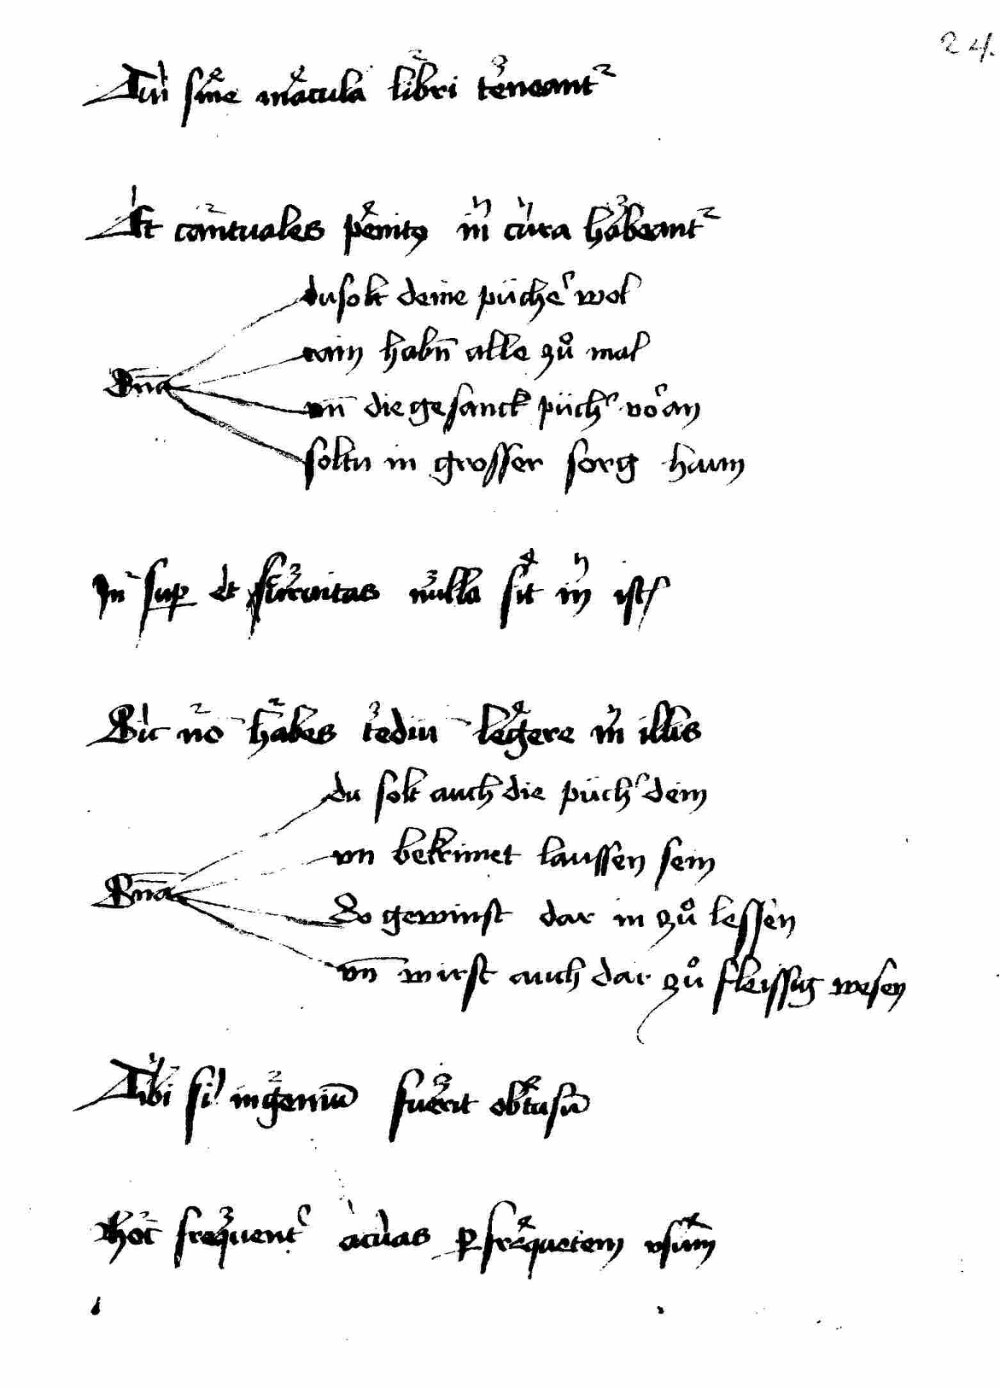 24.
Tui sine macula libri teneant
Et cantuales penitꝰ in cura habeant
du solt deine püche wol
rain habn̄ alle zů mal
Sn̄ia
vn̄ die gesanck püch voran
soltu in grosser sorg haun
In sup et scurritas nulla sit in
Sic nō habes tediū legere in illis
du solt auch die püch dein
vn bekrimet laussen sein
Sn̄ia
So gewinst dar in zů lessen
vn̄ wirst auch dar zů fleissig wesen
Tibi si ingeniū fuerit obtusū
Hoc frequent acuas ꝑ frequetem usum